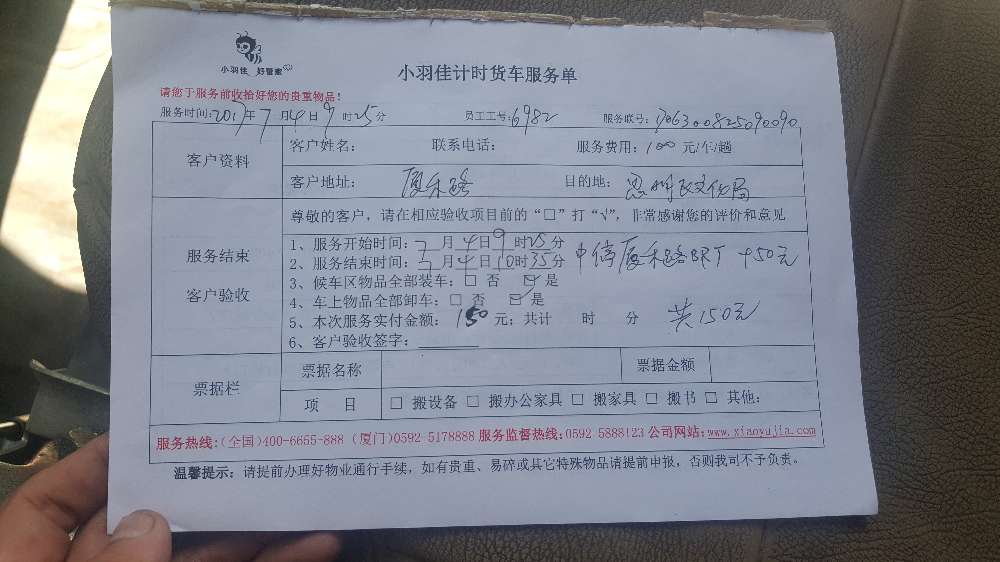 小羽佳 好管家
小羽佳计时货车服务单
请您于服务前收拾好您的贵重物品！
服务时间：2017年7月4日9时25分 员工工号：6982 服务联号：
客户资料
客户姓名： 联系电话： 服务费用：100元/车/趟
客户地址：厦禾路 目的地：思明区文化局
服务结束
客户验收
尊敬的客户，请在相应验收项目前的“□”打“√”，非常感谢您的评价和意见
1、服务开始时间：7月4日9时25分
2、服务结束时间：7月4日10时35分 中停厦禾路BRT +50元
3、候车区物品全部装车：□ 否 ☑ 是
4、车上物品全部卸车：□ 否 ☑ 是
5、本次服务实付金额：150元；共计 时 分 共150元
6、客户验收签字：
票据栏
票据名称 票据金额
项 目 □ 搬设备 □ 搬办公家具 □ 搬家具 □ 搬书 □ 其他：
服务热线：(全国)400-6655-888 (厦门)0592-5178888 服务监督热线：0592 5888123 公司网站：www.xiaoyujia.com
温馨提示：请提前办理好物业通行手续，如有贵重、易碎或其它特殊物品请提前申报，否则我司不予负责。